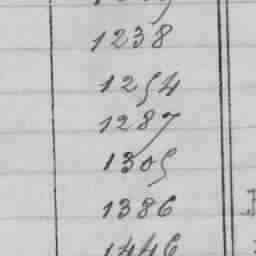 1238
1254
1287
1305
1386
1446